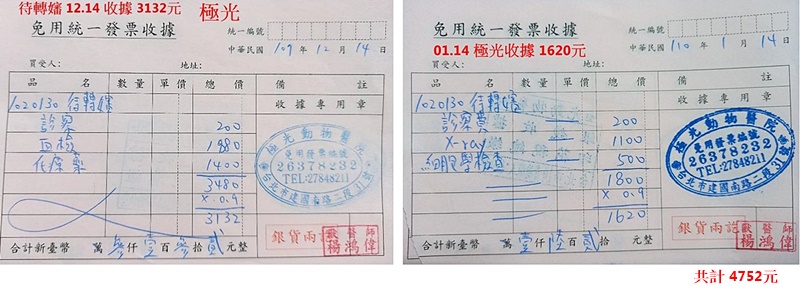 待轉嬸 12.14 收據 3132元 極光
免用統一發票收據
統一編號
中華民國 109 年 12 月 14 日
買受人: 地址:
品 名 數量 單價 總價 備 註
1020130 待轉嬸 收據專用章
診察 200
血檢 1880
化療藥 1400
3480
x 0.9
3132
極光動物醫院
免用發票編號
26378232
TEL:27848211
台北市建國南路二段31號
銀貨兩訖
獸醫師
楊鴻偉
合計新臺幣 萬 參仟 壹百 參拾 貳元整
免用統一發票收據
統一編號
01.14 極光收據 1620元
中華民國 110 年 1 月 14 日
買受人: 地址:
品 名 數量 單價 總價 備 註
1020130 待轉嬸 收據專用章
診察費 200
X-ray 1100
細胞學檢查 500
1800
x 0.9
1620
極光動物醫院
免用發票編號
26378232
TEL:27848211
台北市建國南路二段31號
銀貨兩訖
獸醫師
楊鴻偉
合計新臺幣 萬 壹仟 陸百 貳拾 元整
共計 4752元